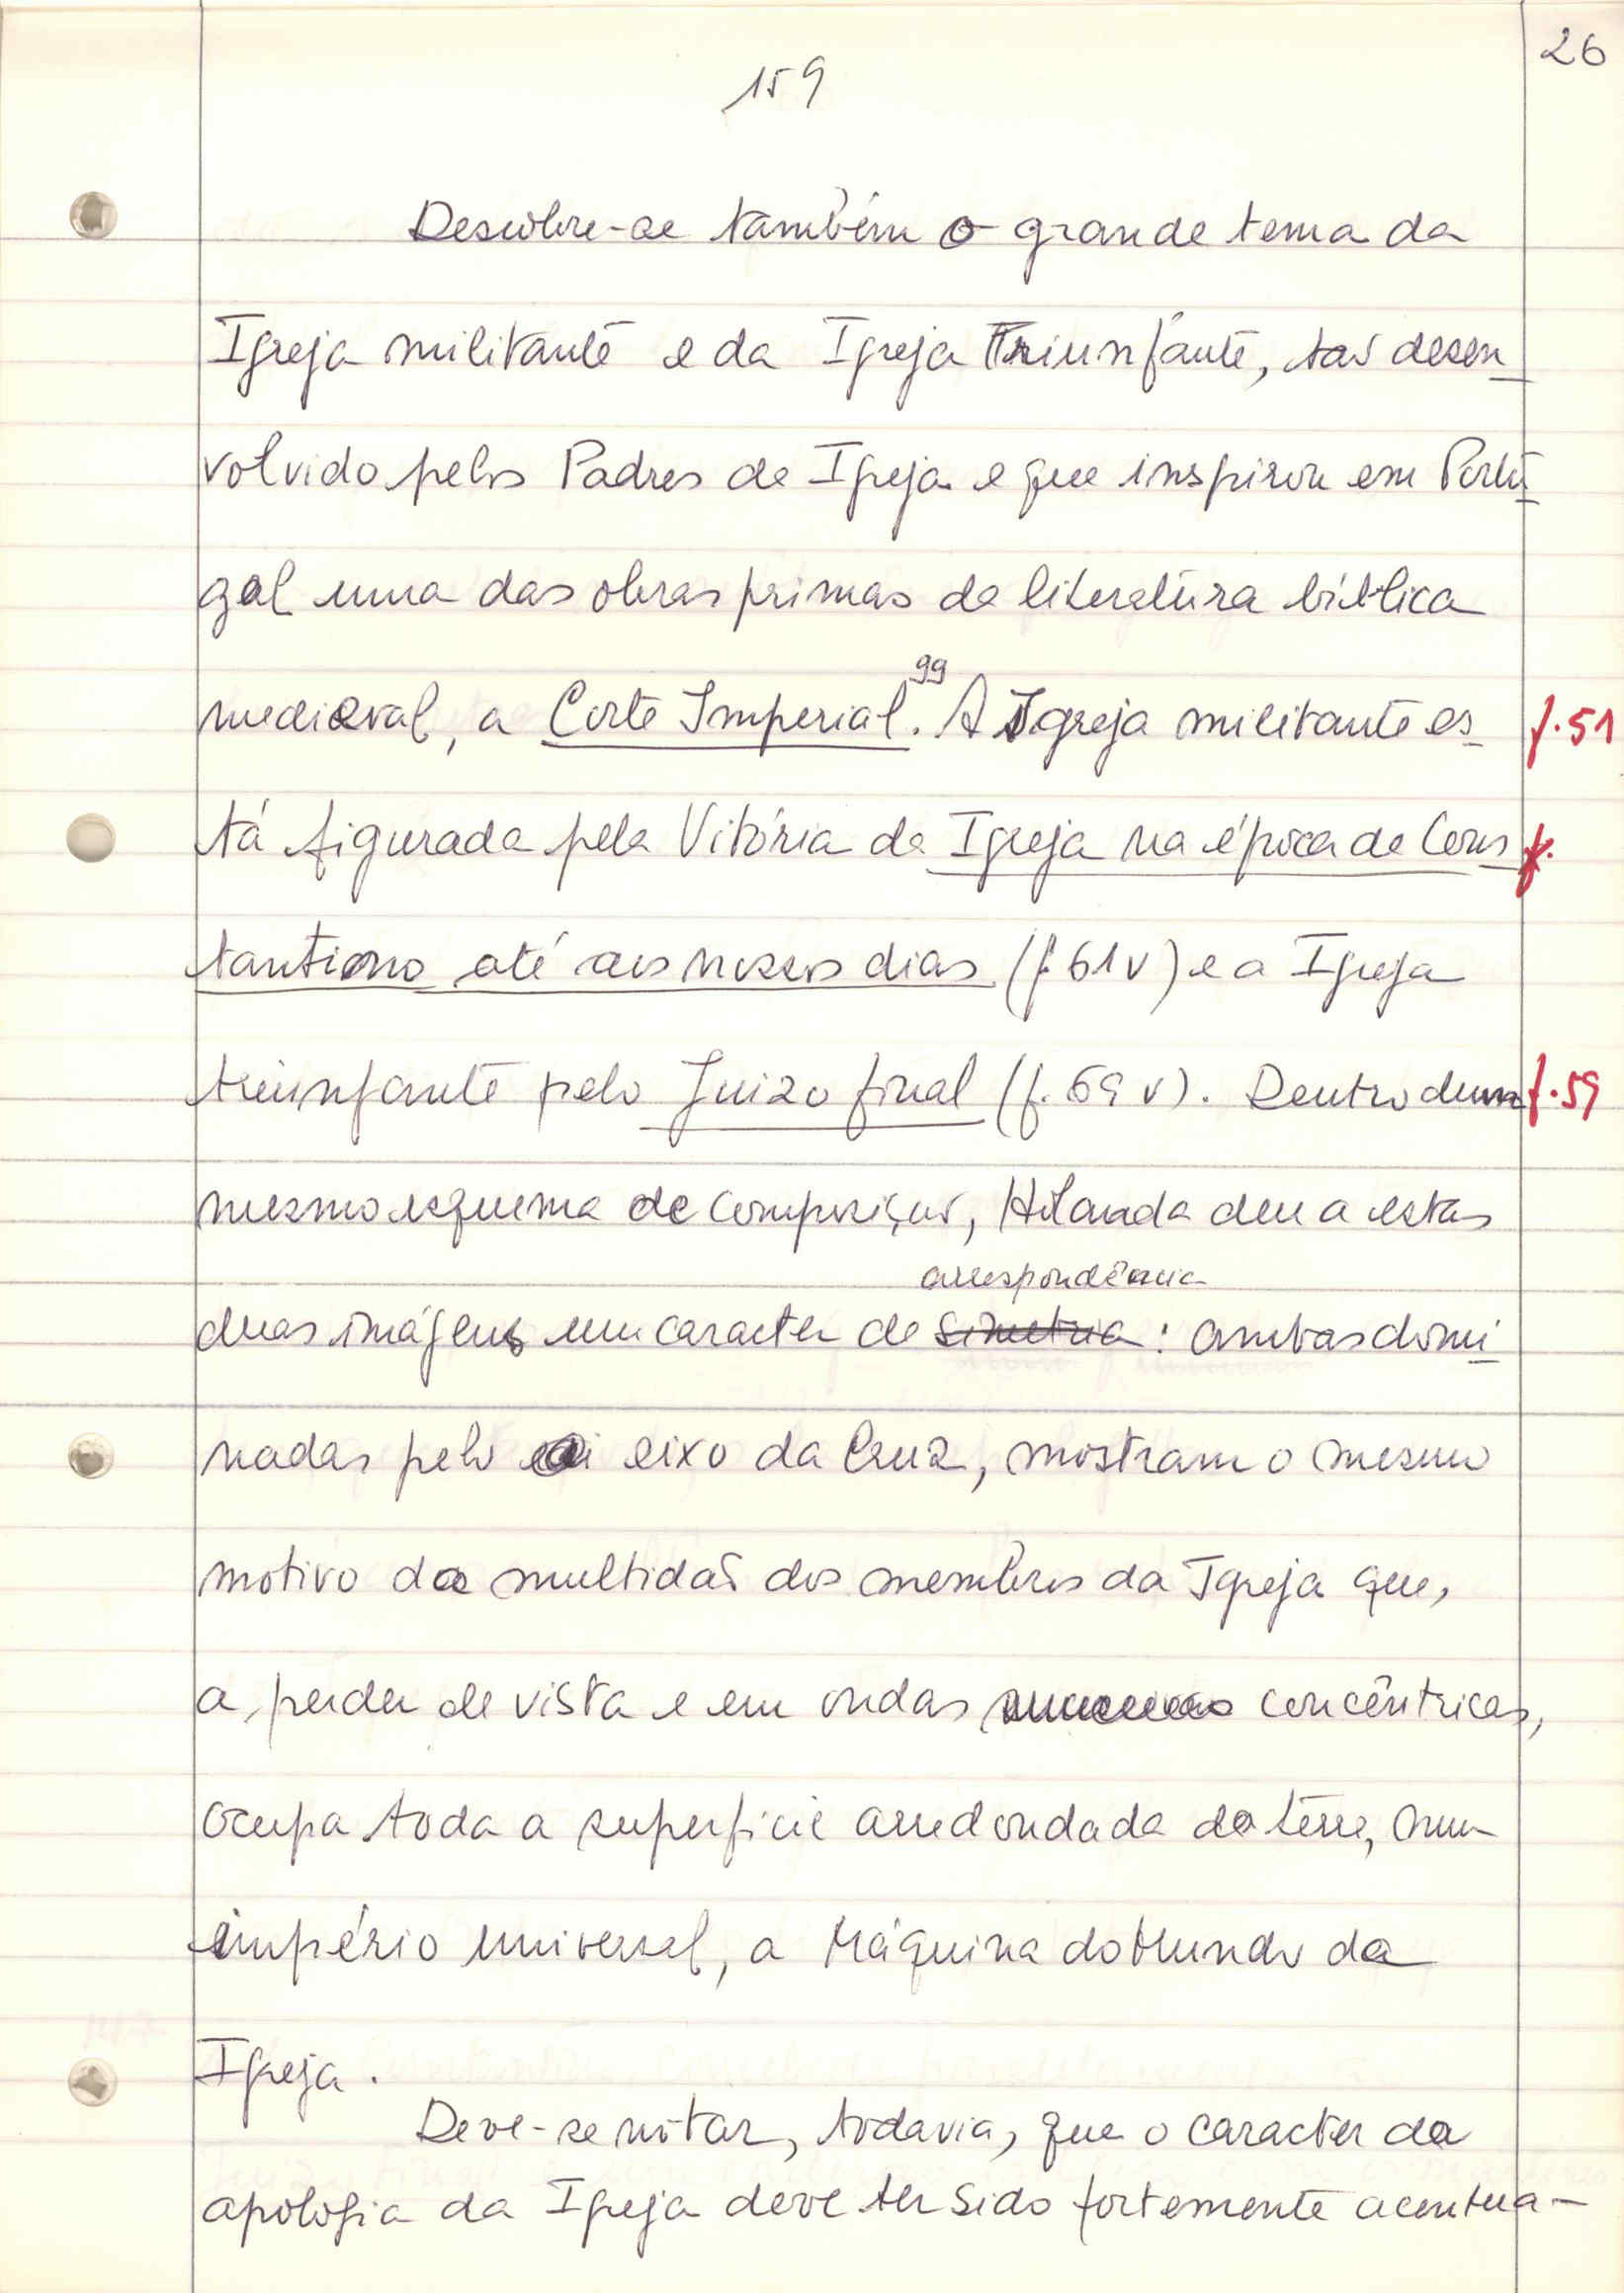 26
159
Descobre-se também o grande tema da
Igreja militante e da Igreja Triunfante, tão desen
volvido pelos Padres da Igreja e que inspirou em Portu
gal uma das obras primas da literatura bíblica
medieval, a Corte Imperial.99 A Igreja militante es f.51
tá figurada pela Vitória da Igreja na época de Cons f.
tantino até aos nossos dias (f.61v) e a Igreja
triunfante pelo Juizo final (f.69v). Dentro dum f.59
mesmo esquema de composição, Holanda deu a estas
correspondência
duas imágens um caracter de simetria : ambas domi
nadas pelo eixo da Cruz, mostram o mesmo
motivo da multidão dos membros da Igreja que,
a perder de vista e em ondas concêntricas,
ocupa toda a superficie arredondada da terra, num
império universal, a Máquina do Mundo da
Igreja.
Deve-se notar, todavia, que o caracter da
apologia da Igreja deve ter sido fortemente acentua-